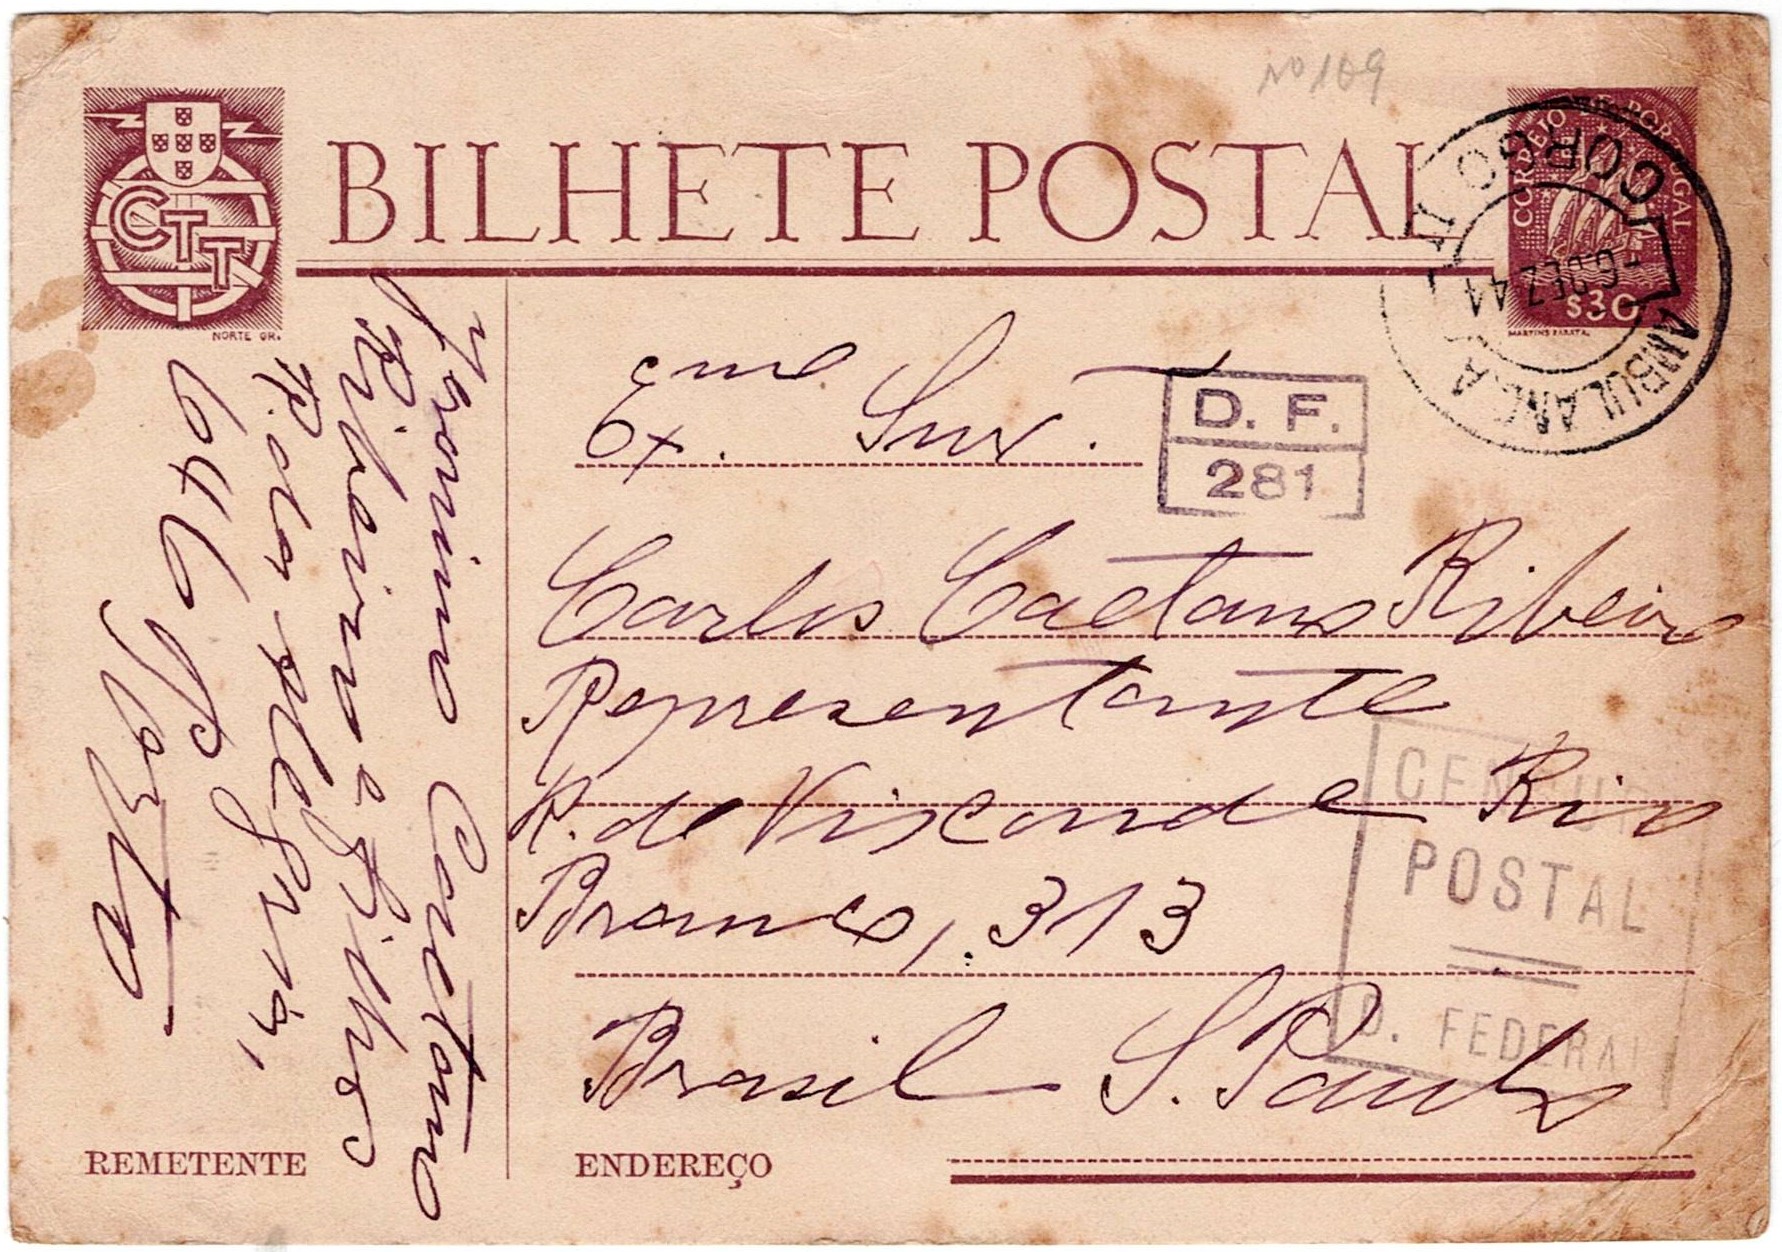 Nº 109
CTT
NORTE GR.
BILHETE POSTAL
CORREIO DE PORTUGAL
$30
MARTINS BARATA.
AMBULANCIA
CORGO II
-6 DEZ 44
D. F.
281
Exmo Snr.
Carlos Caetano Ribeiro
Representante
R. de Visconde Rio
Branco, 313
Brasil S. Paulo
CENSURA
POSTAL
D. FEDERAL
Jeronimo Caetano
Ribeiro & Filho
REMETENTE
ENDEREÇO